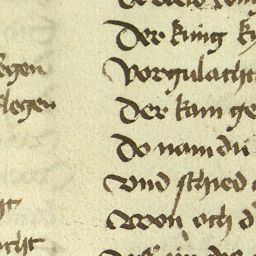 egen
legen
ht
cht
Der king k
vorgulacht
Der kam ge
Do nam du
vnd schied
won och d